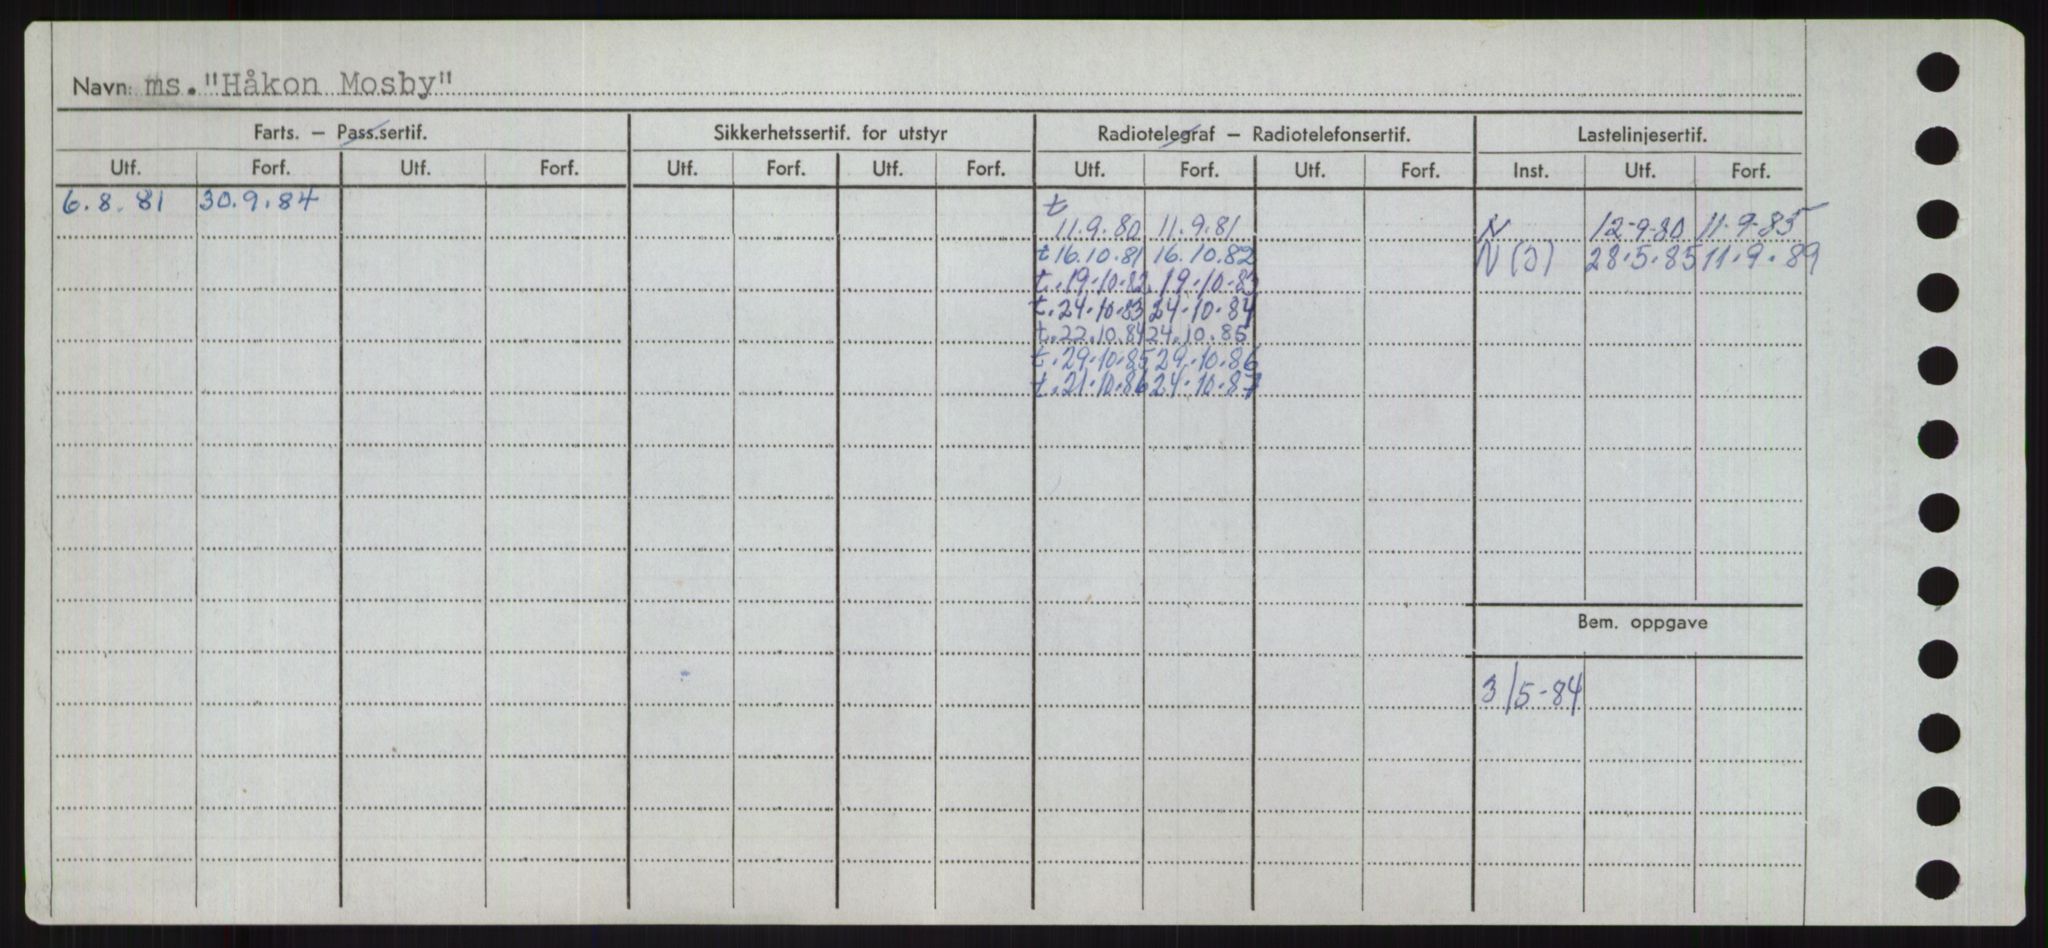 Navn: ms. "Håkon Mosby"
Farts. – Pass.sertif. Sikkerhetssertif. for utstyr Radiotelegraf – Radiotelefonsertif. Lastelinjesertif.
Utf. Forf. Utf. Forf. Utf. Forf. Utf. Forf. Utf. Forf. Utf. Forf. Inst. Utf. Forf.
6.8.81 30.9.84 t
11.9.80 11.9.81 N 12-9-80 11-9-85
t 16.10.81 16.10.82 N (J) 28.5.85 11.9.89
t.19.10.82 19.10.83
t.24.10.83 24.10.84
t.22.10.84 24.10.85
t.29.10.85 29.10.86
t.21.10.86 24.10.87
Bem. oppgave
3/5-84